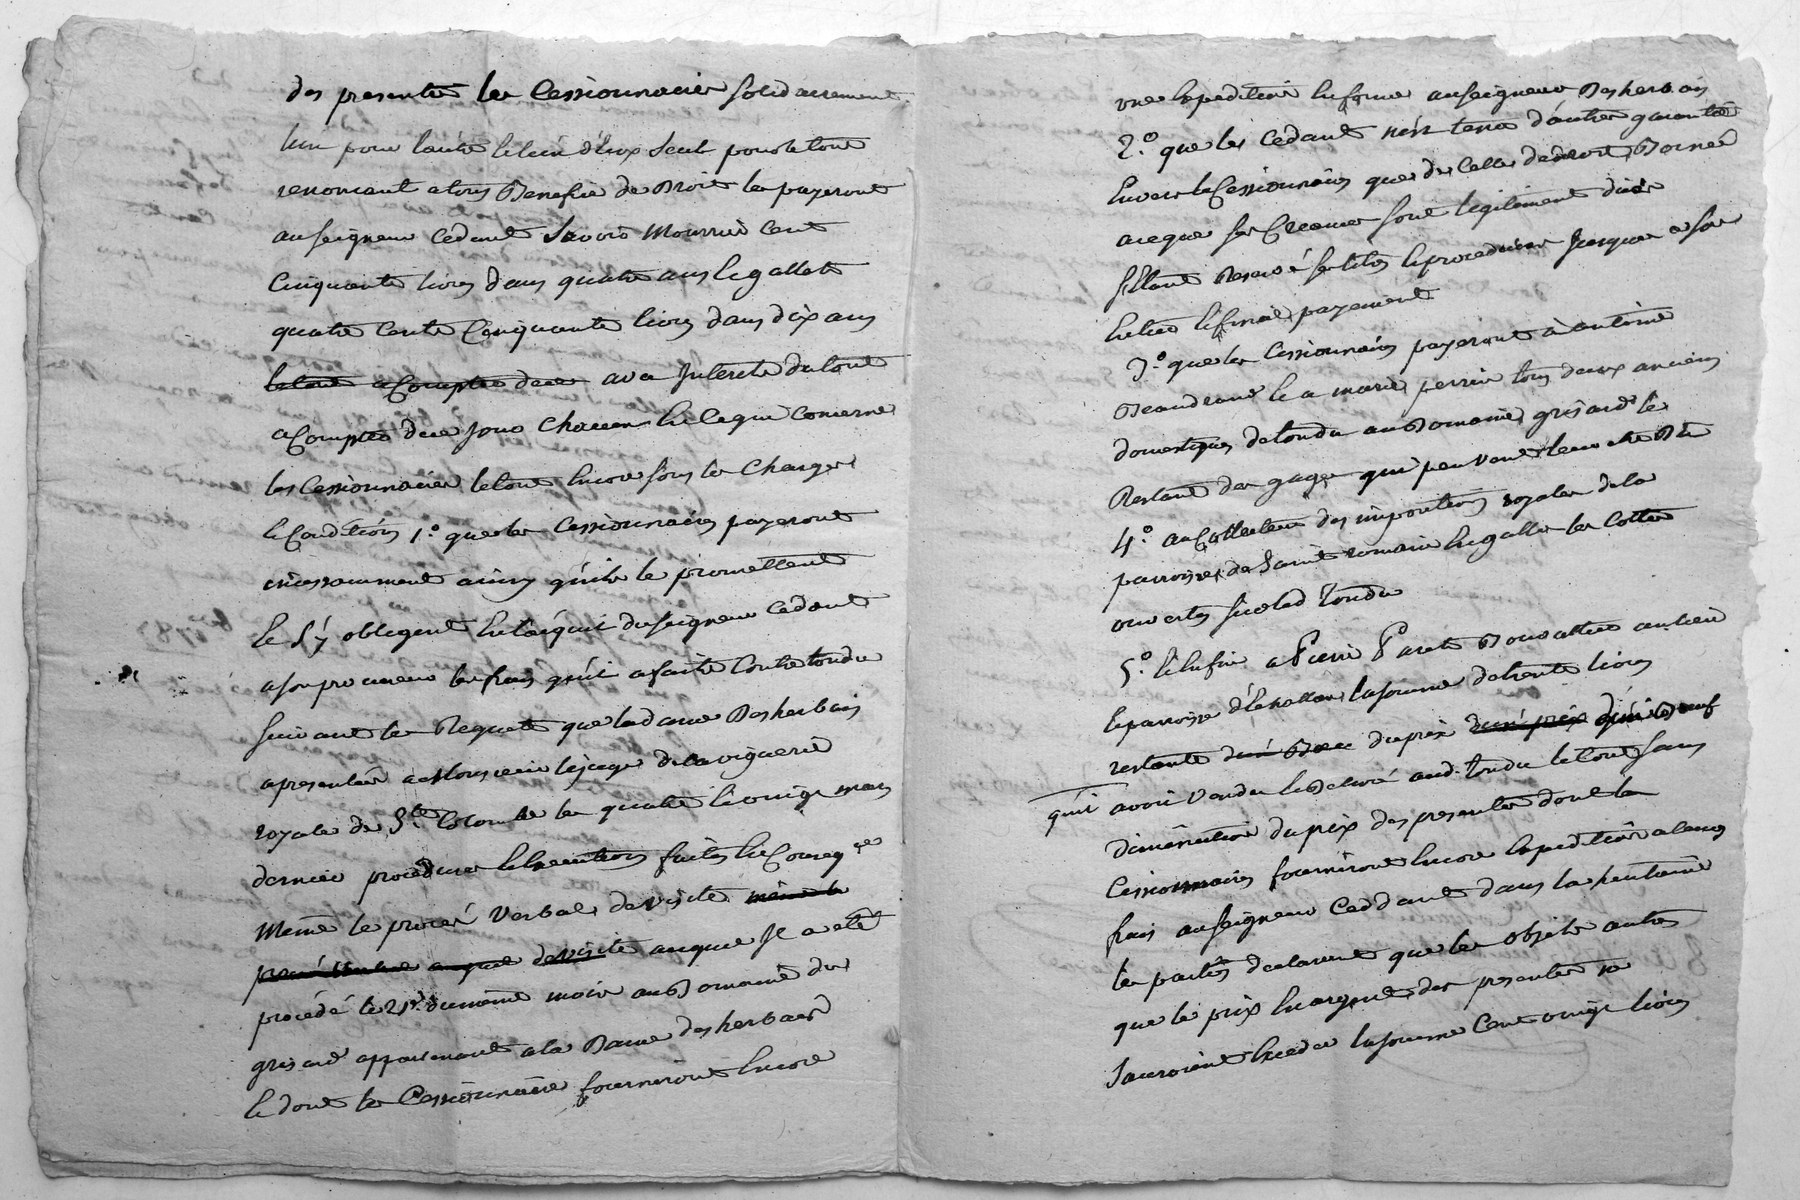 des presentes les Cessionnaires solidairement
lun pour lautre et lun d'eux seul pour le tout
renoncant a tous Benefice de Droit les payeront
au seigneur cedant Savoir Mourrier cent
Cinquante livres dans quatre ans et gallet
quatre cents Cinquante livres dans dix ans
le tout a Compter de ce avec Interets du tout
a Compter de ce jour chacun en ce qui concerne
les Cessionnaires le tout encore sous les charges
et Conditions 1.º que les Cessionnaires payeront
incessamment ainsy qu'ils le promettent
et s'y obligent en lacquit du seigneur cedant
a son procureur les frais qu'il a faits Contre tondu
suivant les Requetes que la dame Desherbais
a presentées a Monsieur le juge de la viguerie
royale de Ste Colombe les quatre et onze mars
dernier procedure et executions faites en Conseqce
Meme le procès Verbal de visite même le
procès Verbal auquel de visite auquel Il a eté
procédé le 21e du même mois au Domaine du
grisard appartenant a la Dame desherbais
et dont les Cessionnaires fourniront encore
une expedition en forme au seigneur Desherbais
2.º que les cedant n'est tenu d'autre garantie
Envers les Cessionnaires que de celle de droit Bornée
a ce que ses Creances sont legitimement dues
s'etant Reservé ses titres et procedures jusques a son
entier et final payement
3.º que les Cessionnaires payeront à antoine
Beaudrand et a marie perrin tous deux anciens
domestiques de tondu au Domaine grisard le
Restant des gages qui peuvent leur etre Du
4.º au Collecteur des impositions royales de la
parroisse de Saint romain en gallet les Cottes
ouvertes sur led tondu
5.º Et enfin a Pierre Paret
la parroisse d'Echallas la somme de trente livres
restante du prix
qu'il avoit Vendu et Delivré aud. tondu le tout sans
diminution du prix des presentes dont les
Cessionnaires fourniront encore expedition a leurs
frais au seigneur Ceddant dans la huitaine
les parties declarent que les objets autres
que le prix en argent des presentes ne
sauroient exceder la somme Cent onze livres